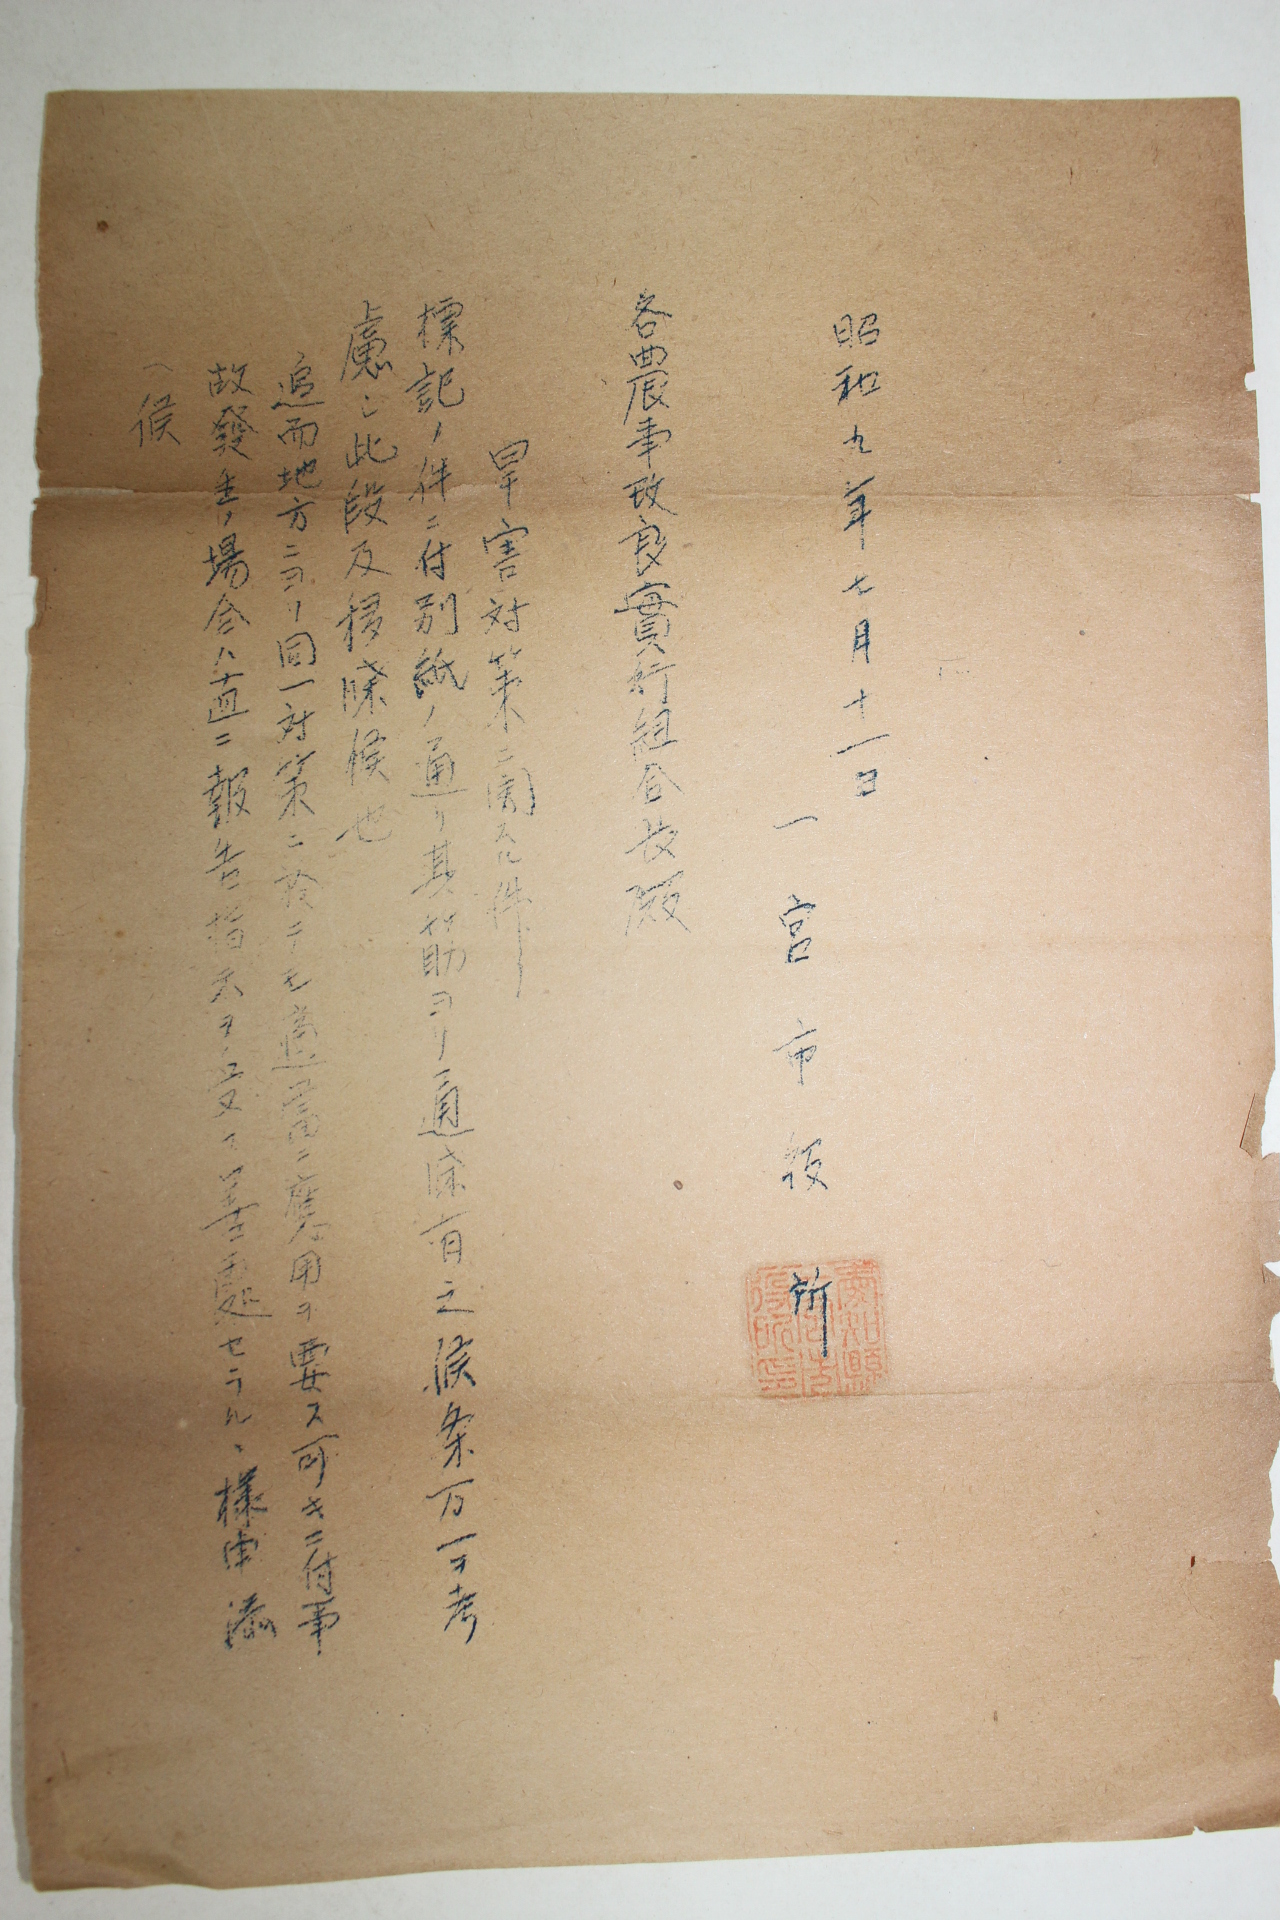 昭和九年七月十一日
一宮市役所
各農事改良實行組合長殿
旱害対策ニ関スル件
標記ノ件ニ付別紙ノ通リ其筋ヨリ通牒有之候条万一ヲ考
慮シ此段及移牒候也
追而地方ニヨリ同一対策ニ於テモ適當ニ應用ヲ要ス可キニ付事
故發生ノ場合ハ直ニ報告指示ヲ受ケ善處セラルヽ様申添
ヘ候
愛知縣
役所印